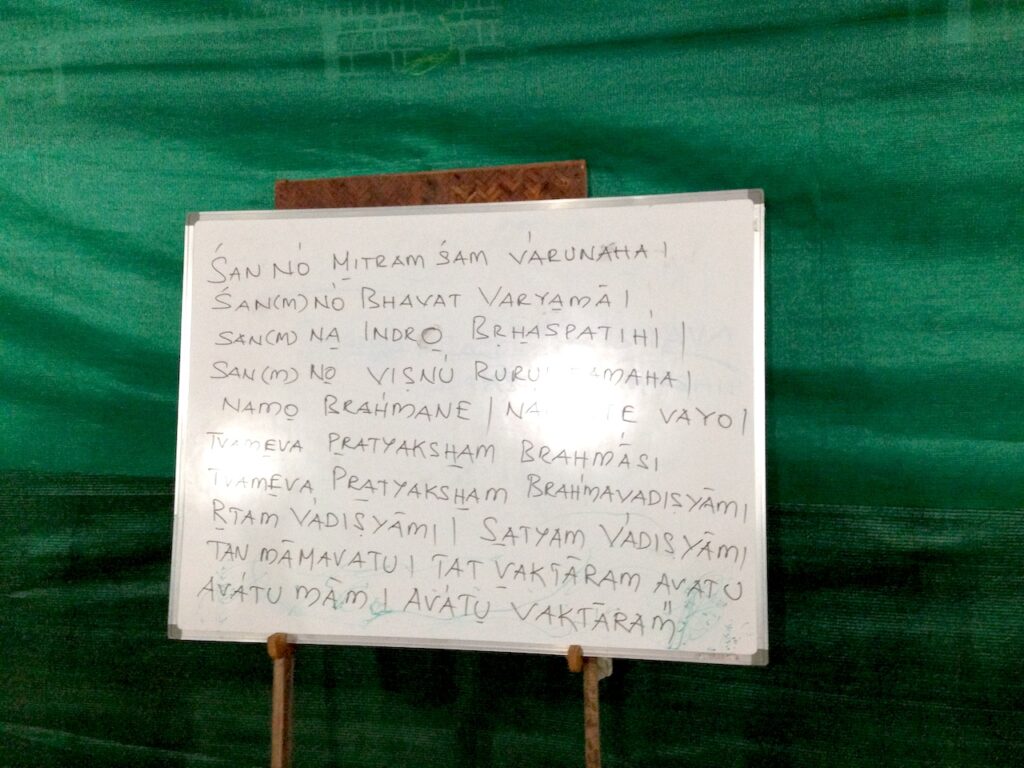 ŚAN NÓ M̱ITRAM ŚAM VÁRUṆAHA |
ŚAN(M) NÓ BHAVAT VARYA̱MĀ |
SAN(M) NA̱ INDRO̱ BṚHA̱SPATIHÍ |
SAN(M) NO̱ VIṢNÚ
NAMO̱ BRAHMANE | VAYO |
TVAME̱VA PṞATYAKSHA̱M BRAHMÁSI
TVAME̱VA PRA̱TYAKSHA̱M BRAHMAVADIṢYĀMI
ṚTAM VÁDIṢYĀMI | SA̱TYAM VÁDIṢYĀMI
TAN MĀMAVATU | TAT VA̱KTĀRAM AVATU
AVÁTU MĀM | AVÁTU̱ VAKTĀRAM̎